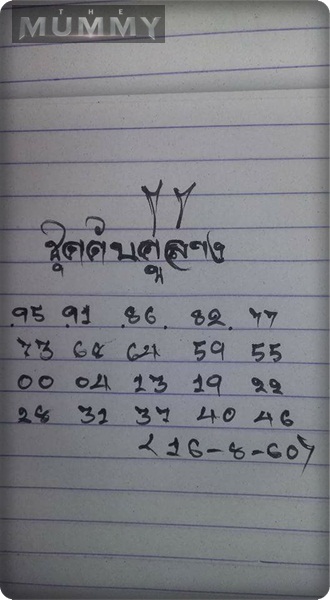 THE
MUMMY
ชุดดับคู่ล่าง
95 91 86 82 77
73 68 64 59 55
00 04 13 19 22
28 31 37 40 46
(16-8-60)